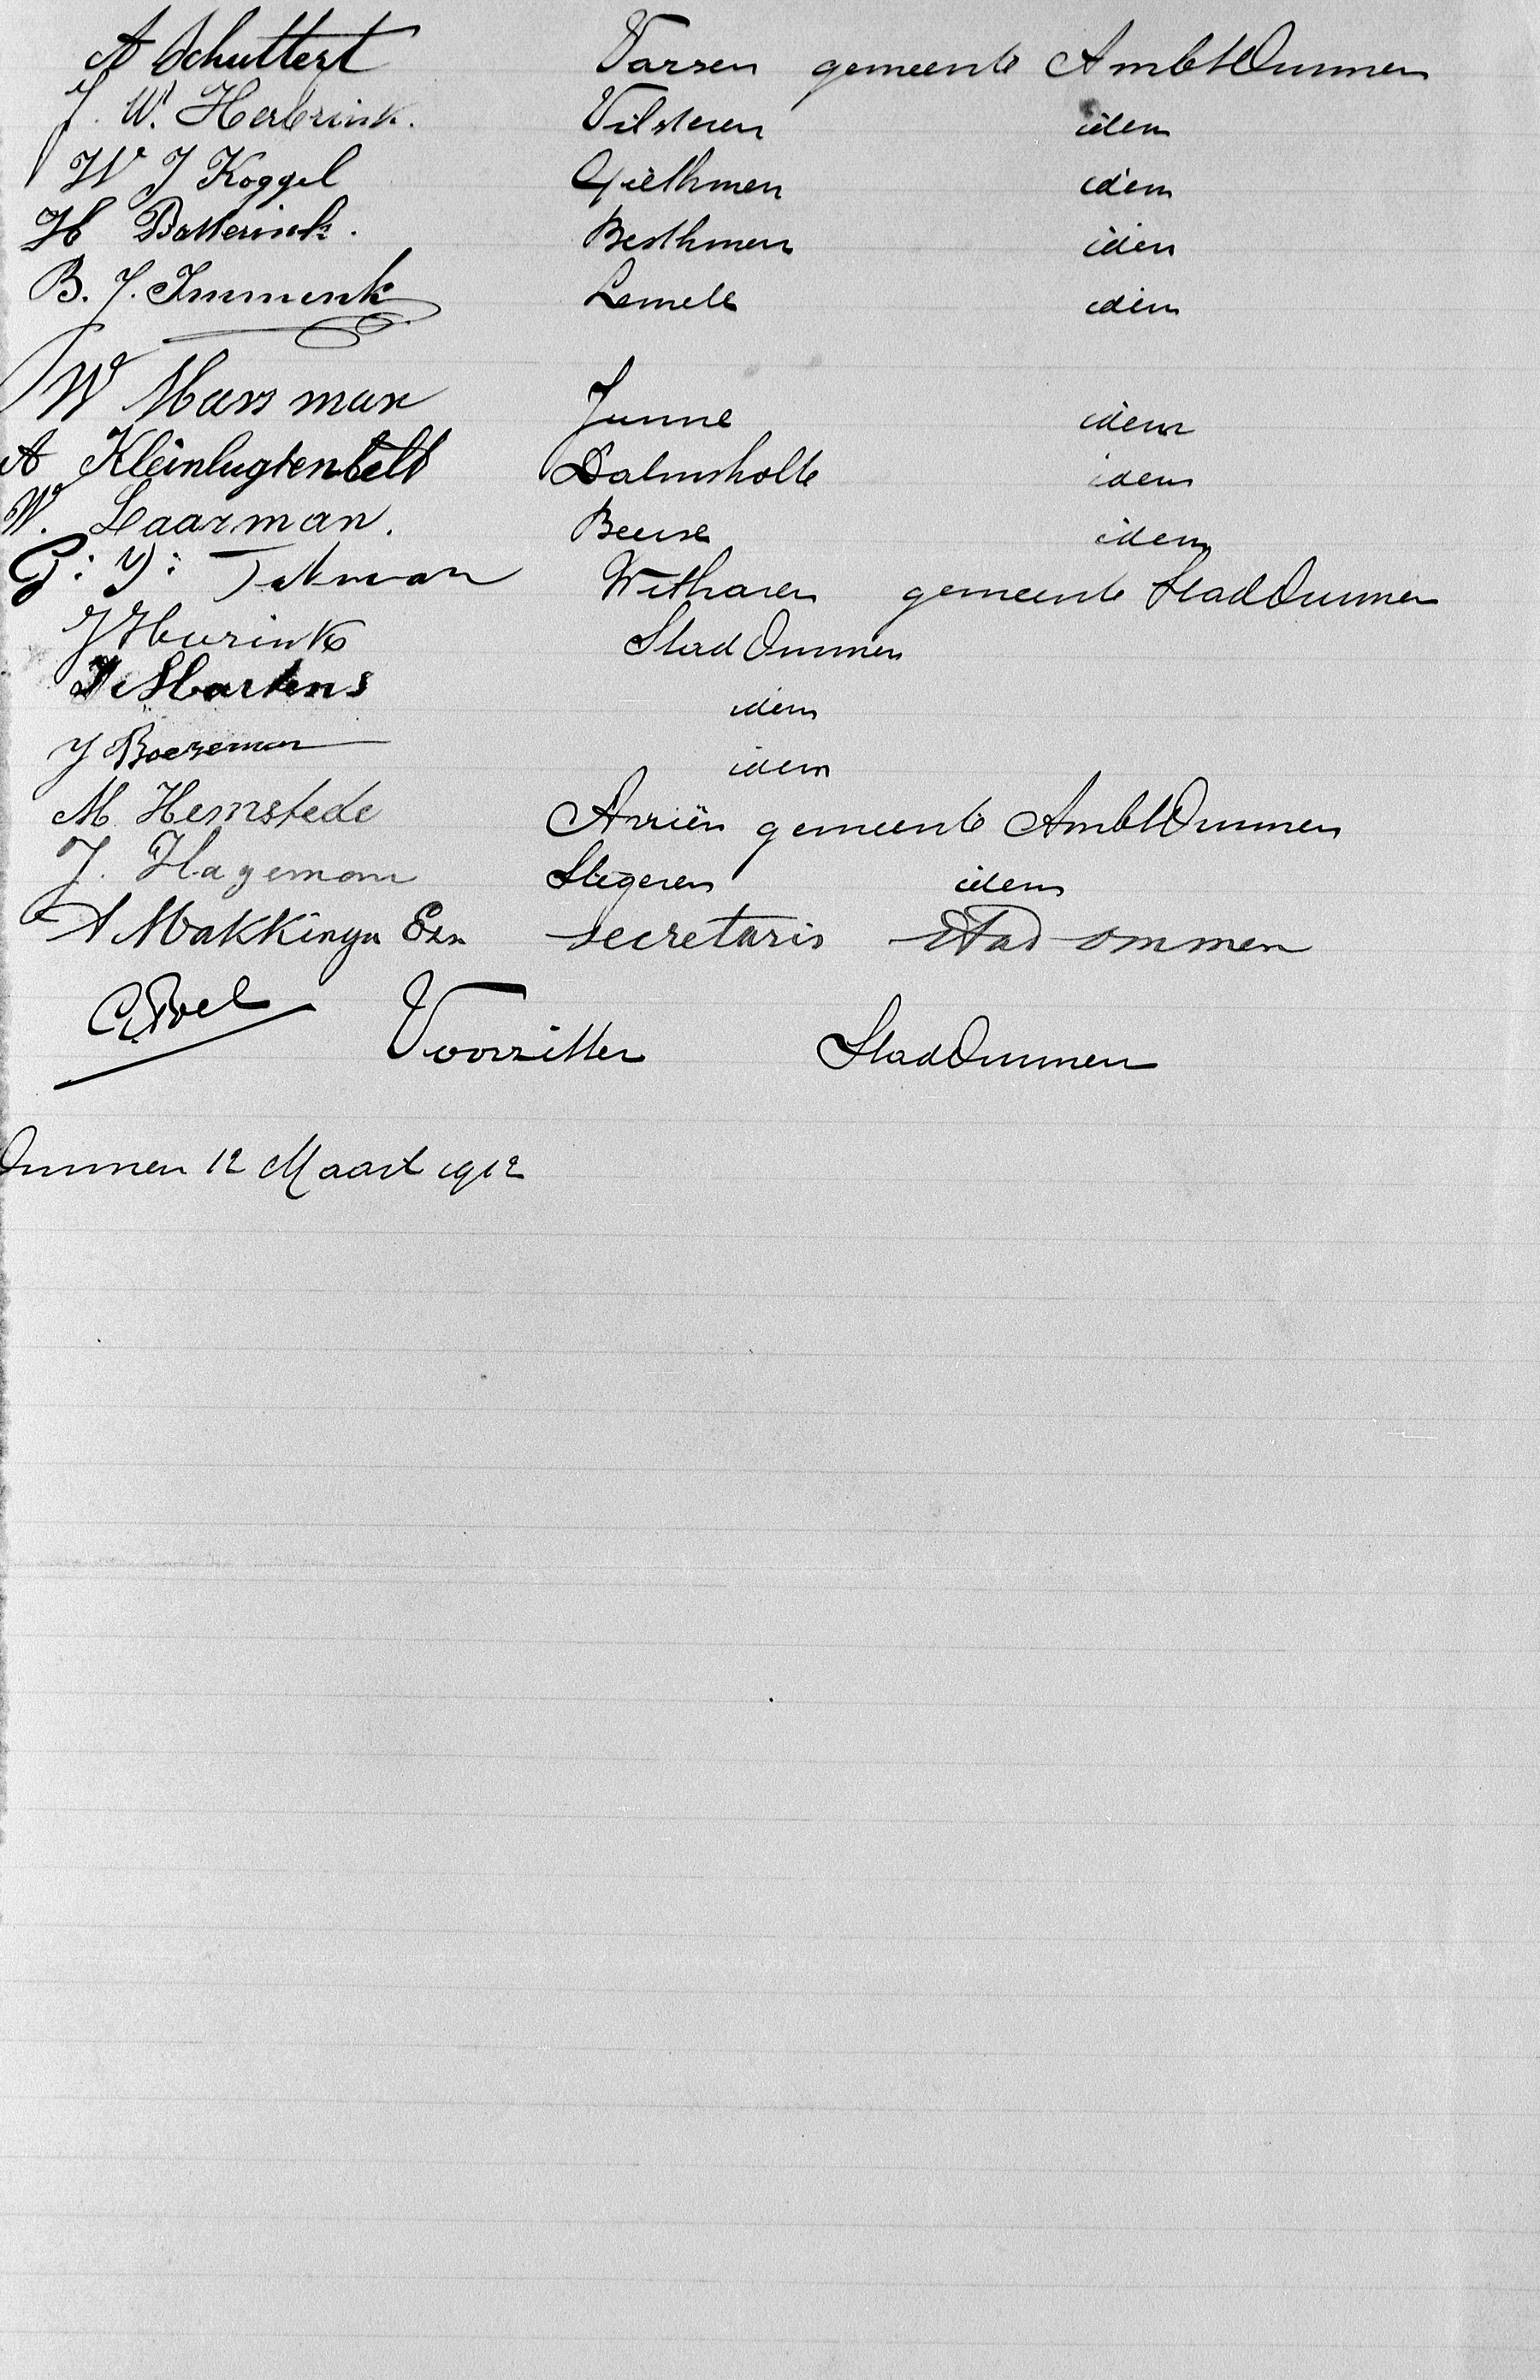 A Schuttert Varsen gemeente Ambt Ommen
J. W. Herbrink. Vilsteren idem
W J Koggel Giethmen idem
H Botterink. Besthmen idem
B. J. Immink Lemele idem
W Marsman Junne idem
A Kleinlugtenbelt Dalmsholte idem
W. Laarman. Beerse idem
G: J: Tekman Witharen gemeente Stad Ommen
J Hurink Stad Ommen
Martens idem
J Boezeman idem
M Hemstede Arriën gemeente Ambt Ommen
J. Hageman Stegeren idem
A Makkinga Ezn secretaris Stad Ommen
C. Poel Voorzitter Stad Ommen
Ommen 12 Maart 1912